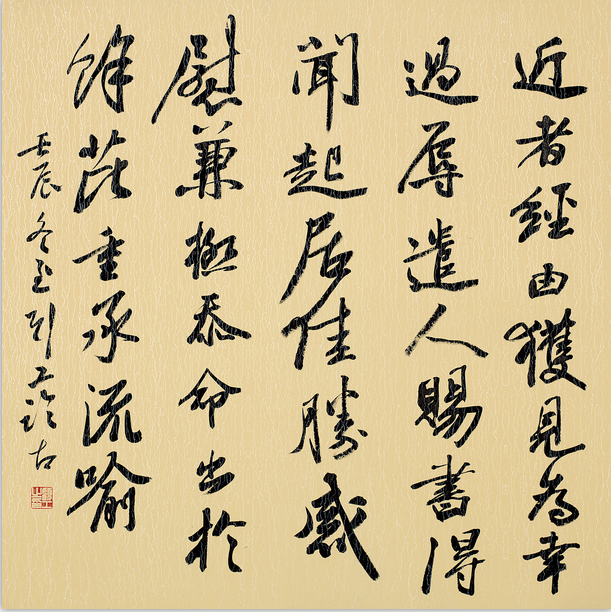 近者經由獲見為幸
過辱遣人賜書得
聞起居佳勝感
慰兼極忝命出於
餘芘重承流喻
壬辰冬至